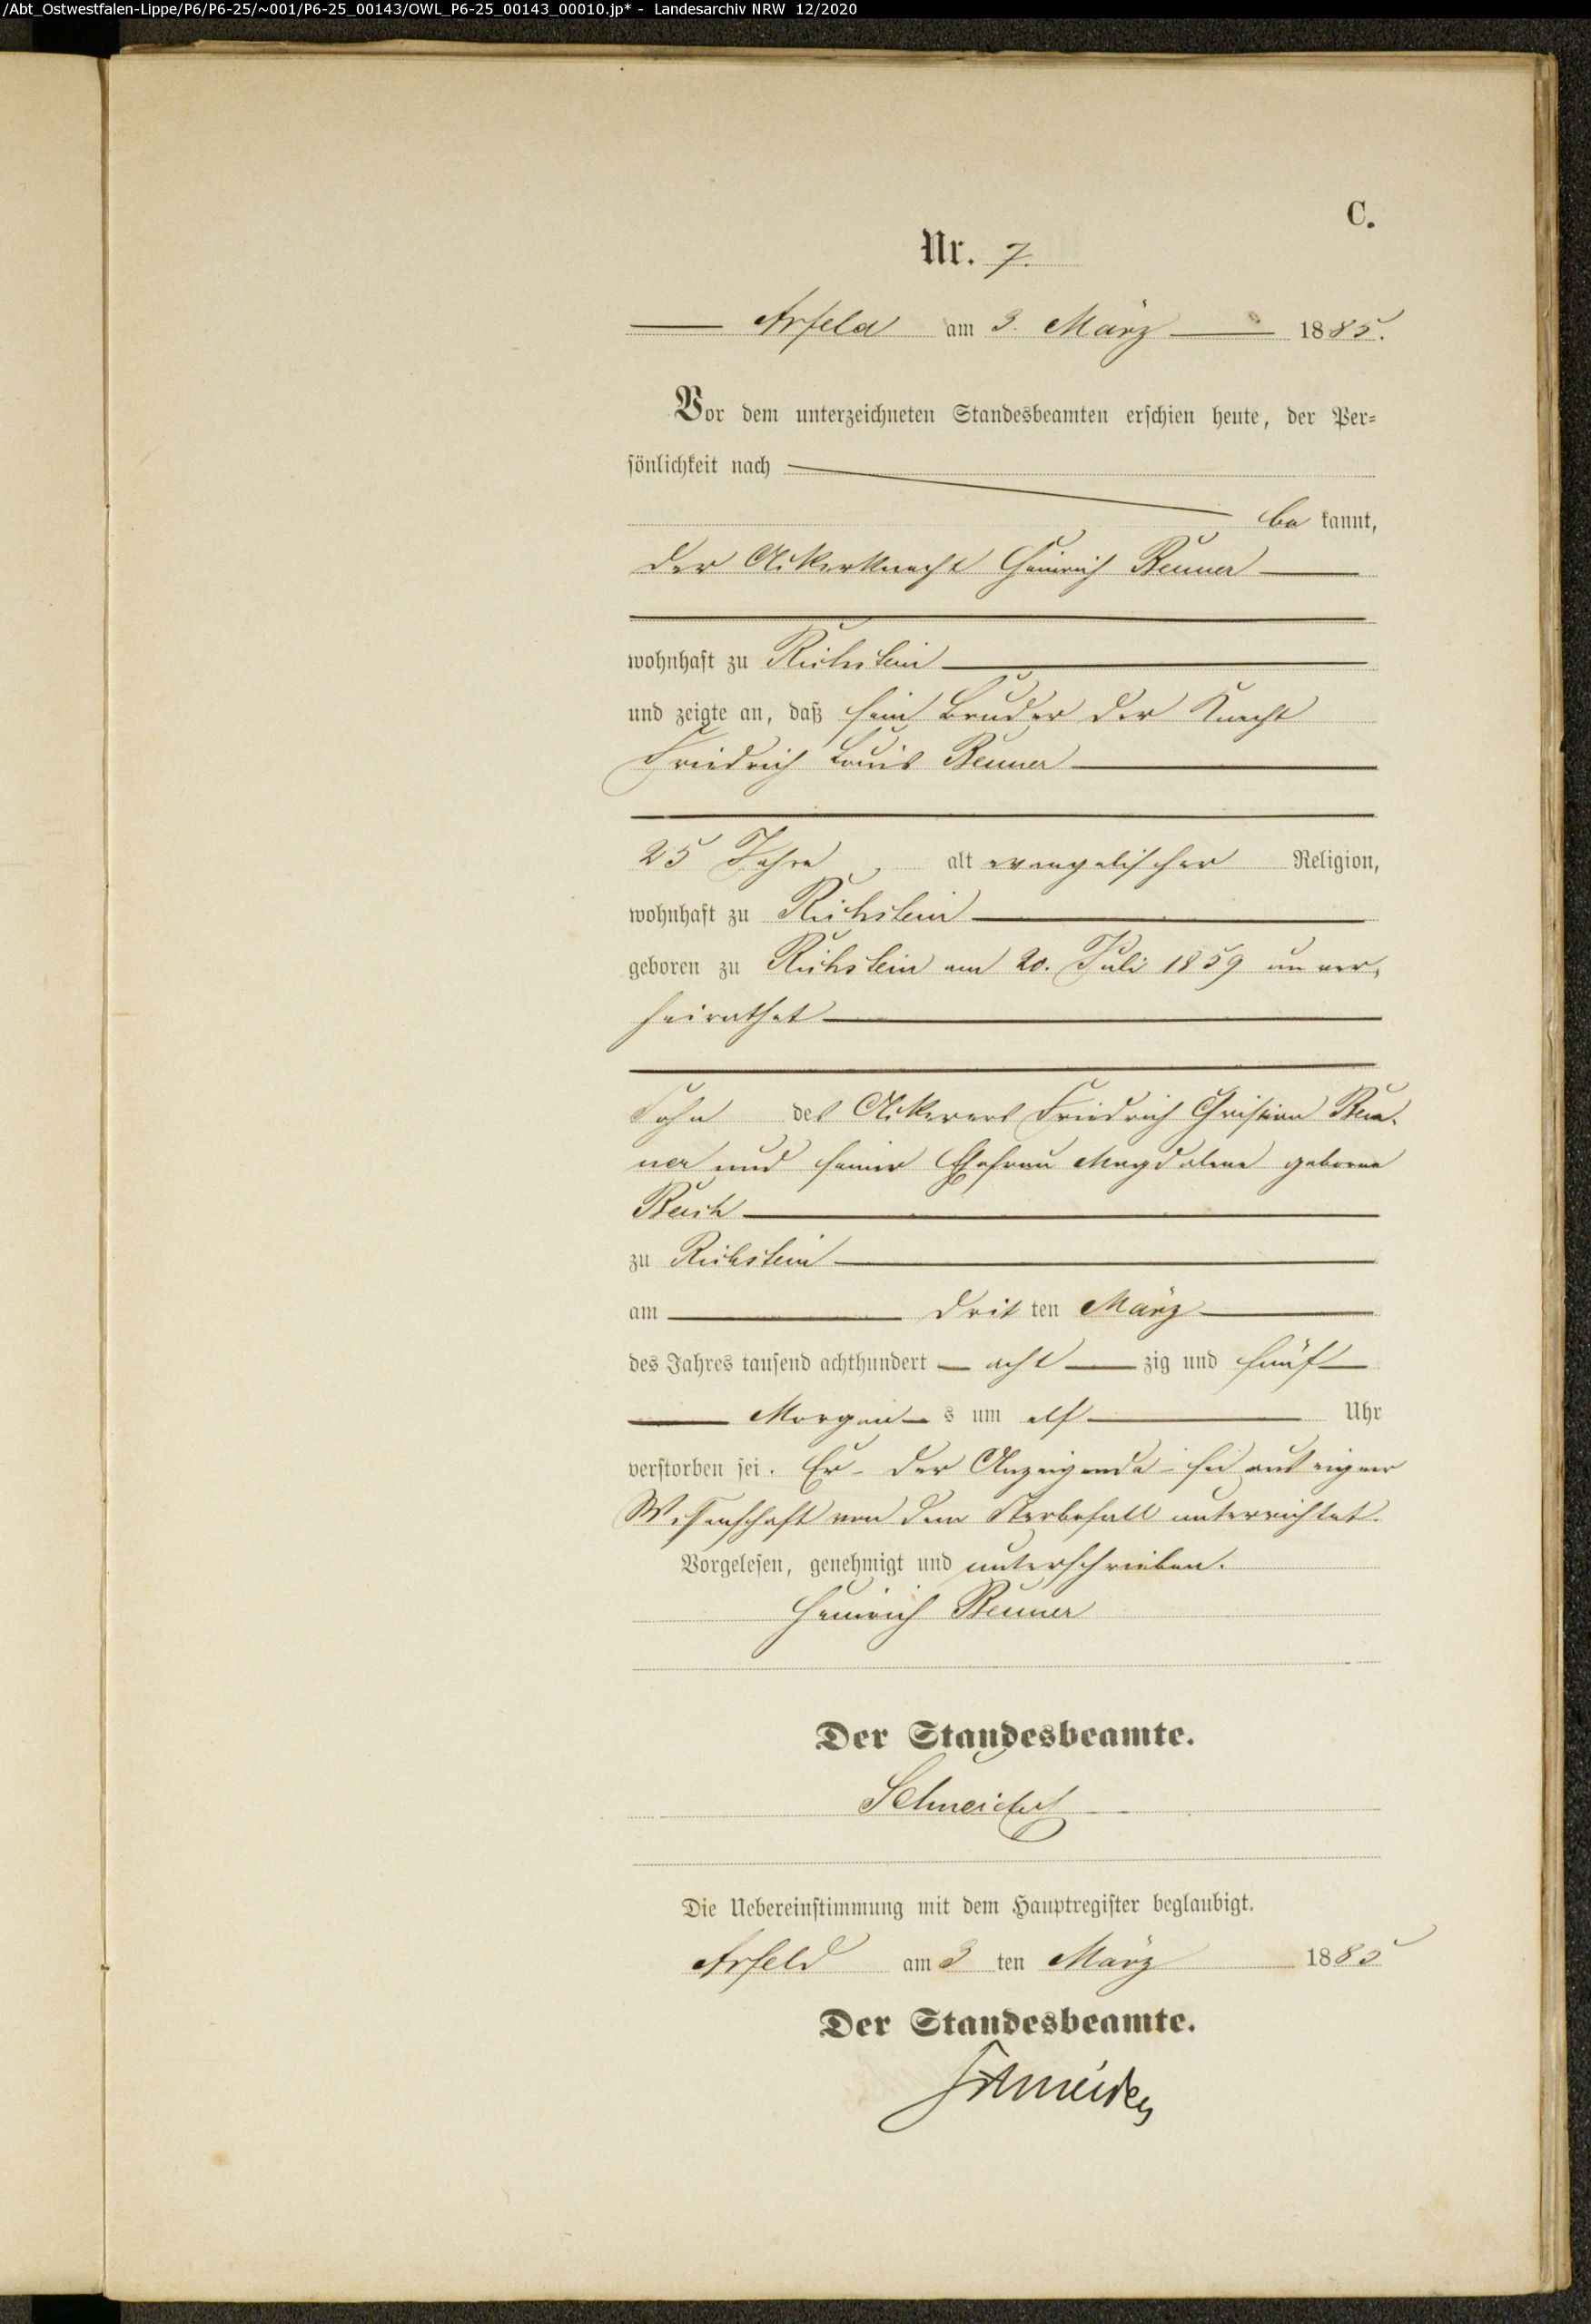 /Abt_Ostwestfalen-Lippe/P6/P6-25/~001/P6-25_00143/OWL_P6-25_00143_00010.jp* - Landesarchiv NRW 12/2020
C.
Nr. 7.
Arfeld am 3. März 1885.
Vor dem unterzeichneten Standesbeamten erschien heute, der Per-
sönlichkeit nach
be kannt,
der Ackerknecht Heinrich Benner
wohnhaft zu Richstein
und zeigte an, daß sein Bruder der Knecht
Friedrich Louis Benner
25 Jahre, alt evangelischer Religion,
wohnhaft zu Richstein
geboren zu Richstein am 20. Juli 1859 unver-
heirathet
Sohn des Ackerers Friedrich Christian Ben-
ner und seiner Ehefrau Magdalene geborene
zu Richstein
am drit ten März
des Jahres tausend achthundert acht zig und fünf
Morgen s um elf Uhr
verstorben sei. Er - der Anzeigende - sei aus eigner
Wissenschaft von dem Sterbefall unterrichtet.
Vorgelesen, genehmigt und unterschrieben.
Heinrich Benner
Der Standesbeamte.
Schneider
Die Uebereinstimmung mit dem Hauptregister beglaubigt.
Arfeld am 3 ten März 1885
Der Standesbeamte.
Schneider